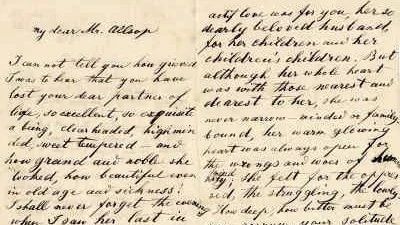 my dear Mr. Allsop
I can not tell you how grieved
I was to hear that you have
lost your dear partner of
life, so excellent, so exquisite
a being, clearheaded, highmin
ded, sweet tempered - and
how grand and noble she
looked, how beautiful even
in old age and sickness!
I shall never forget the evening
when I saw her last in
love was for you, her so
dearly beloved husband,
for her children and her
children's children. But
although her whole heart
was with those nearest and
dearest to her, she was
never narrow-minded or family
bound, her warm glowing
heart was always open for
the wrongs and woes of
she felt for the oppres
sed, the struggling, the lowly.
How deep, how bitter must be
your solitude